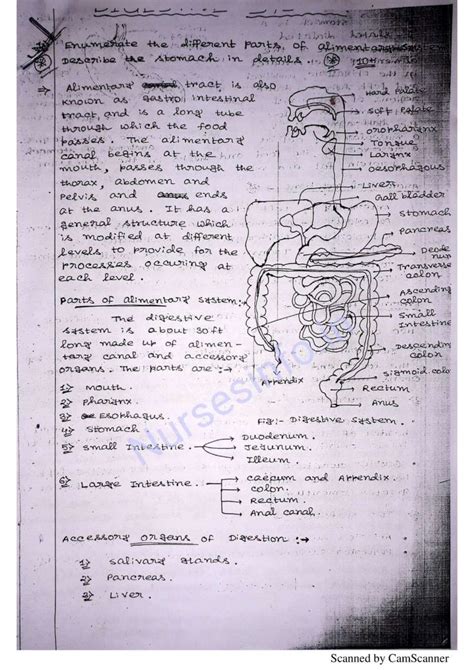 DIGESTIVE
1) Enumerate the different parts of alimentary
Describe the stomach in details. 10+
→ Alimentary tract is also
known as gastro intestinal
tract, and is a long tube
through which the food
passes. The alimentary
canal begins at the
mouth, passes through the
thorax, abdomen and
pelvis and ends
at the anus. It has a
general structure which
is modified at different
levels to provide for the
processes occuring at
each level.
Hard Palate
Soft Palate
oropharynx
Tongue
Larynx
oesophagous
Liver
Gall bladder
Stomach
Pancreas
Deode
num
Transverse
colon
Ascending
colon
Small
Intestine
Descending
colon
Sigmoid colo
Rectum
Anus
Appendix
Fig:- Digestive System.
Parts of alimentary system:→
The digestive
system is about 30ft
long made up of alimen-
tary canal and accessory
organs. The parts are :→
1) Mouth.
2) Pharynx.
3) Esophagus.
4) Stomach
5) Small Intestine
Duodenum.
Jejunum.
Illeum.
6) Large Intestine.
Caepum and Appendix.
Colon.
Rectum.
Anal canal.
Accessory organs of Digestion :→
1) Salivary glands.
2) Pancreas.
3) Liver.
Nursesinfo.in
Scanned by CamScanner